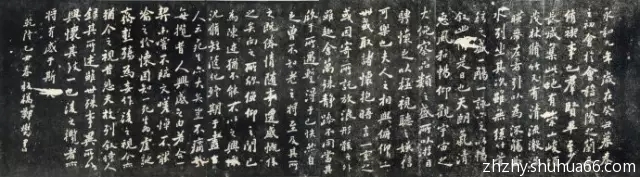 永和九年歲在癸丑暮春之
初會于會稽山陰之蘭亭
脩禊事也群賢畢至少
長咸集此地有崇山峻領
茂林脩竹又有清流激
湍暎帶左右引以為流觴曲
水列坐其次雖無絲竹管
弦之盛一觴一詠亦足以暢
敘幽情是日也天朗氣清
惠風和暢仰觀宇宙之
大俯察品類之盛所以遊目
騁懷足以極視聽之娛信
可樂也夫人之相與俯仰一
世或取諸懷抱晤言一室之內
或因寄所託放浪形骸之外
雖趣舍萬殊靜躁不同當其
欣於所遇暫得於己快然自
足曾不知老之將至及其所
之既倦情隨事遷感慨係
之矣向之所欣俛仰之間已
為陳迹猶不能不以之興懷
況脩短隨化終期于盡古
人云死生亦大矣豈不痛哉
每攬昔人興感之由若合一
契未嘗不臨文嗟悼不能
喻之於懷固知一死生為虛誕
齊彭殤為妄作後之視今亦
猶今之視昔悲夫故列敘時人
錄其所述雖世殊事異所以
興懷其致一也後之攬者亦
將有感于斯文
乾隆八年板橋鄭燮書
zhzhy.shuhua66.com